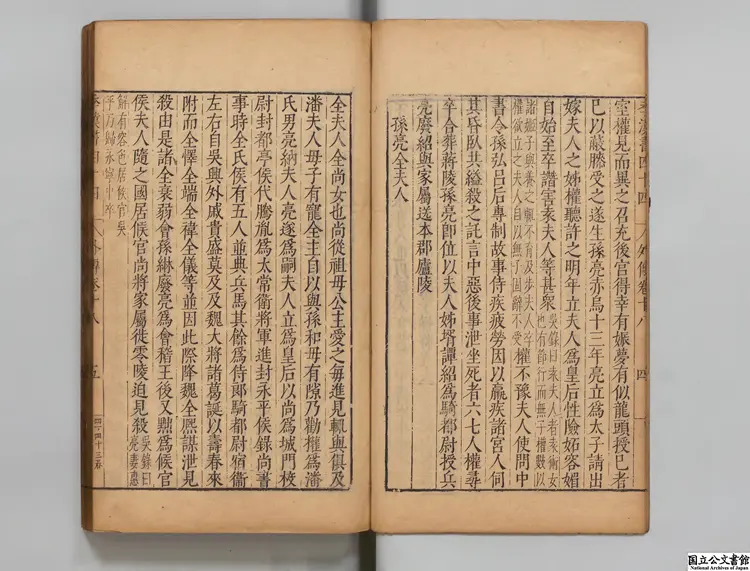 室權見而異之召充後宮得幸有娠夢有似龍頭授己者
已以蔽膝受之遂生孫亮赤烏十三年亮立爲太子請出
嫁夫人之姊權聽許之明年立夫人爲皇后性險妬容媚
自始至卒譖害袁夫人等甚衆吳錄曰袁夫人者袁術女也有節行而無子權數以
諸姬子與養之輒不育及步夫人薨權欲立之夫人自以無子固辭不受權不豫夫人使問中
書令孫弘呂后專制故事侍疾疲勞因以羸疾諸宮人伺
其昏臥共縊殺之託言中惡後事泄坐死者六七人權尋
卒合葬蔣陵孫亮卽位以夫人姊壻譚紹爲騎都尉授兵
亮廢紹與家屬送本郡廬陵
孫亮全夫人
全夫人全尚女也尚從祖母公主愛之每進見輒與俱及
潘夫人母子有寵全主自以與孫和母有隙乃勸權爲潘
氏男亮納夫人亮遂爲嗣夫人立爲皇后以尚爲城門校
尉封都亭侯代滕胤爲太常衞將軍進封永平侯錄尚書
事時全氏侯有五人並典兵馬其餘爲侍郞騎都尉宿衞
左右自吳興外戚貴盛莫及及魏大將諸葛誕以壽春來
附而全懌全端全禕全儀等並因此際降魏全熙謀泄見
殺由是諸全衰弱會孫綝廢亮爲會稽王後又黜爲候官
侯夫人隨之國居候官尚將家屬徙零陵追見殺吳錄曰亮妻惠
解有容色居候官吳平乃歸永寧中卒
國立公文書館
National Archives of Japan